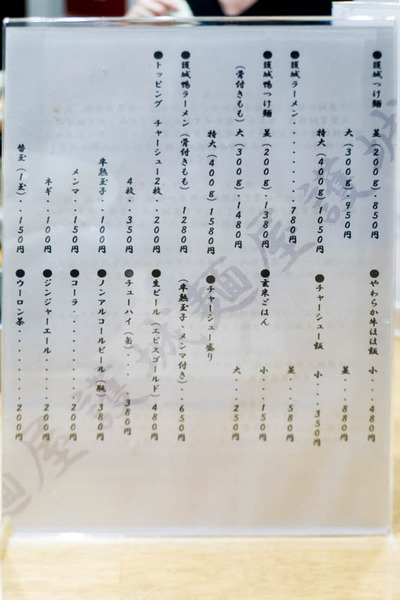 ●護城つけ麺 並(200g)・850円
大(300g)・950円
特大(400g)1050円
●護城ラーメン・・・・・・・・780円
●護城鴨つけ麺 並(200g)・1380円
(骨付きもも) 大(300g)・1480円
特大(400g)1580円
●護城鴨ラーメン(骨付きもも) 1280円
●トッピング チャーシュー2枚・・200円
4枚・・350円
半熟玉子・・100円
メンマ・・150円
ネギ・・100円
替玉(1玉)・・150円
●やわらか牛ほほ飯 小・・480円
並・・880円
●チャーシュー飯 小・・350円
並・・580円
●玄米ごはん 小・・150円
大・・250円
●チャーシュー盛り
(半熟玉子・メンマ付き)・・650円
●生ビール(エビスゴールド)480円
●チューハイ(缶)・・・380円
●ノンアルコールビール(瓶)380円
●コーラ・・・・・・・・200円
●ジンジャーエール・・・・200円
●ウーロン茶・・・・・・・200円
麺屋護城